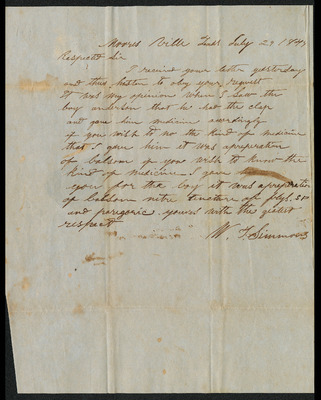 Moores Ville July 29 1843
Respected Sir
I received your letter yesterday
and thus hasten to obey your request
It was my opinion when I saw the
boy anderson that he had the clap
and gave him medicine accordingly
if you wish to no the kind of medicine
that I gave him it was a preparation
of balsom if you wish to know the
kind of medicine I gave
you for the boy it was a preparation
of balsom nitre tincture of
and paregoric yours with the
respect
W. T. Simmons